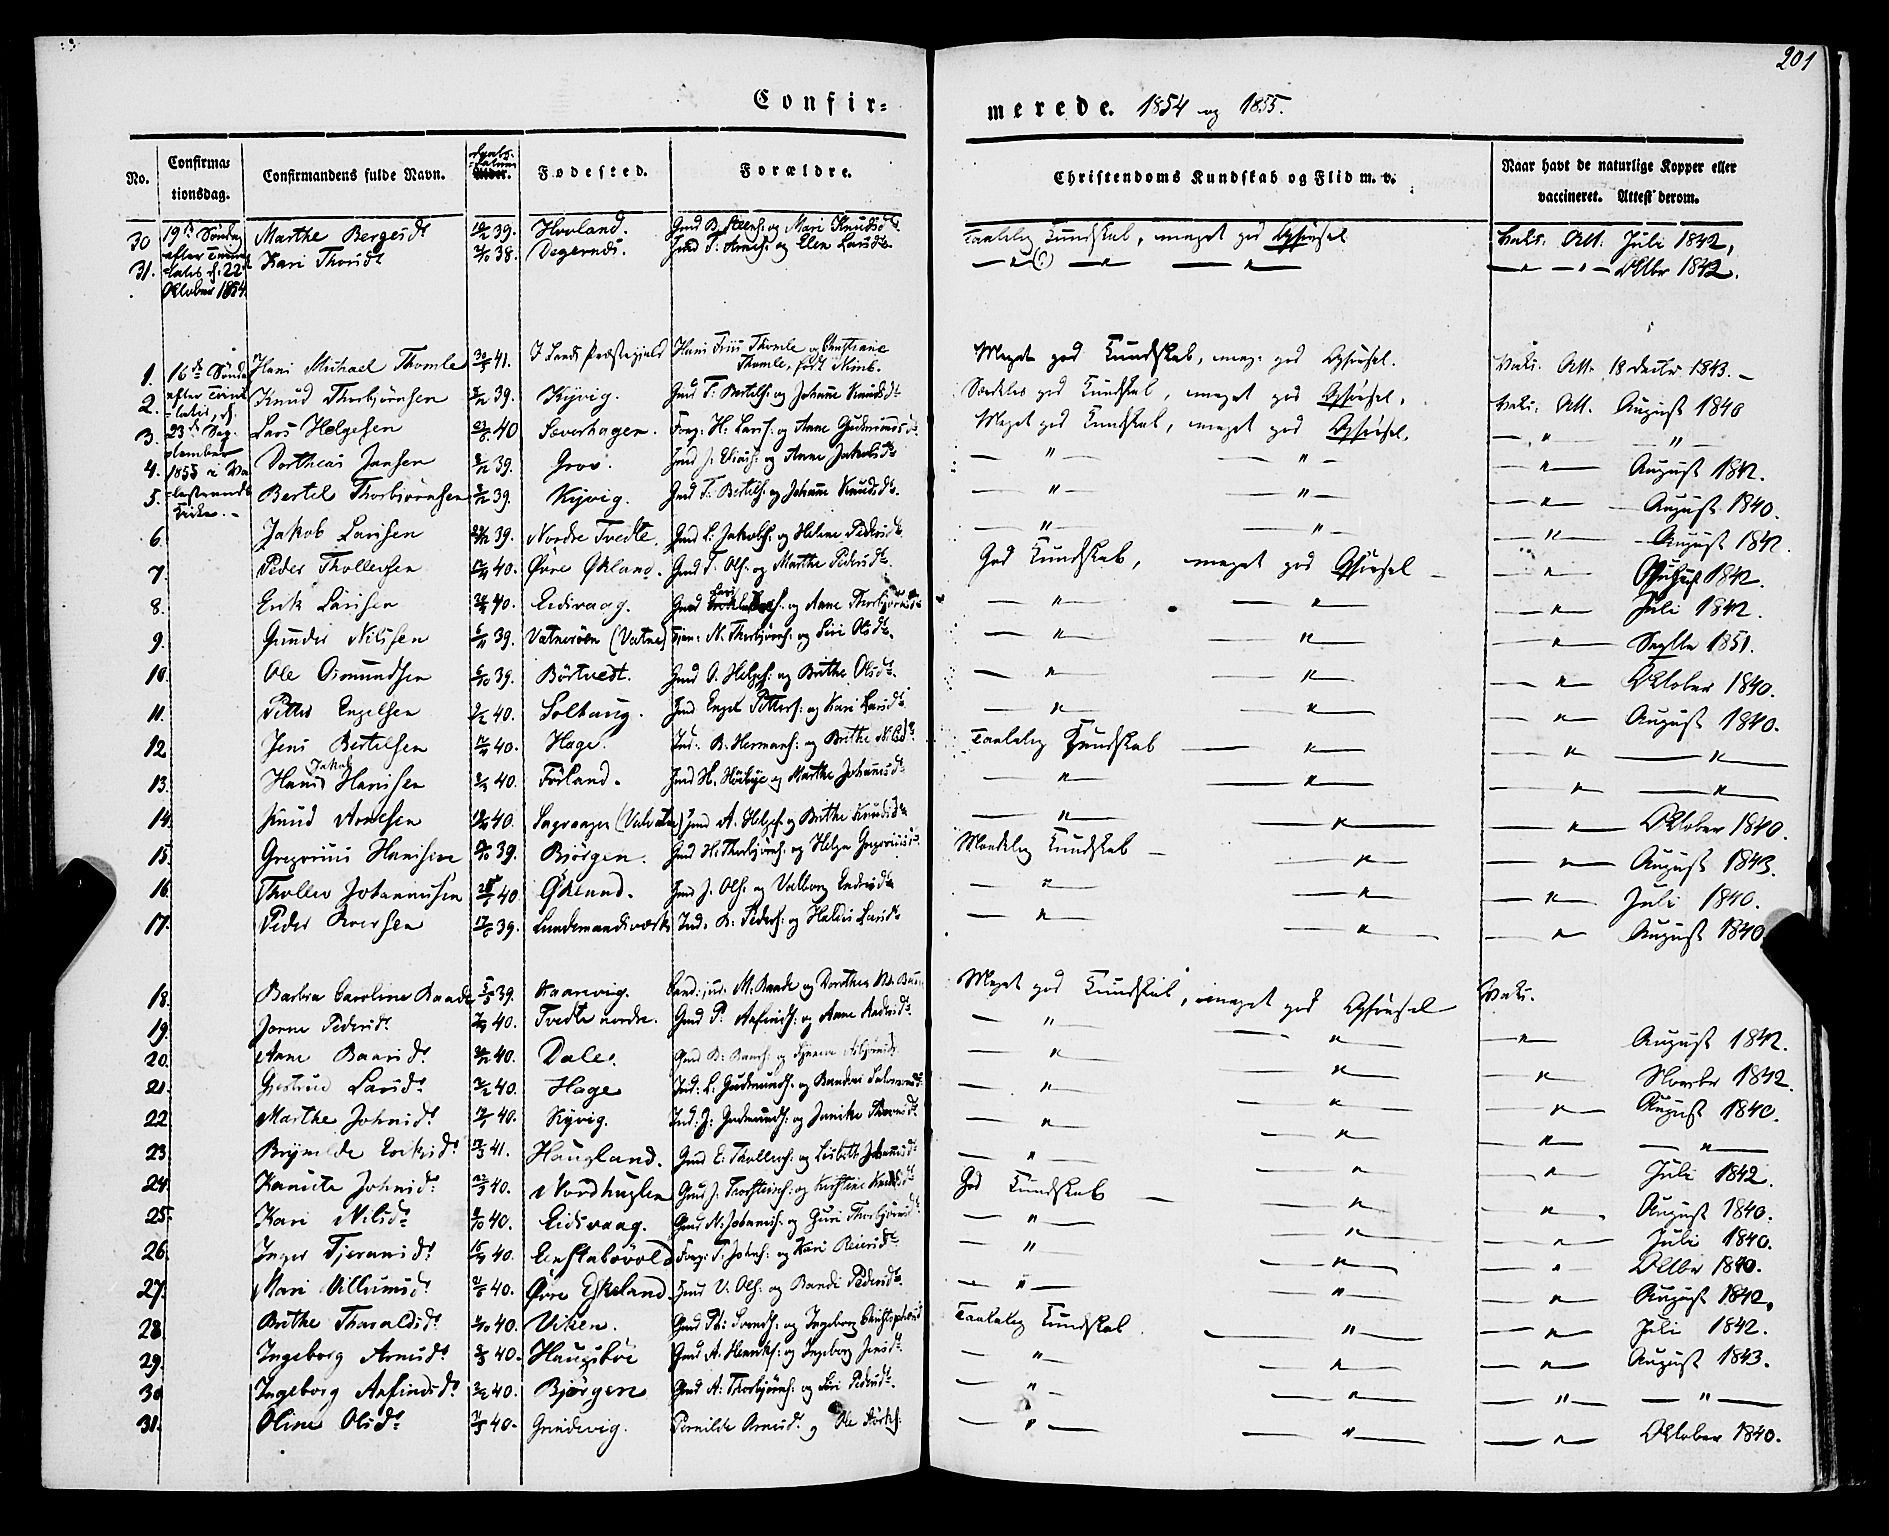 201
Confir-
merede. 1854 og 1855.
No.
Confirma-
tionsdag.
Confirmandens fulde Navn.
Alder.
Fødested.
Forældre.
Christendoms Kundskab og Flid m. v.
Naar havt de naturlige Kopper eller
vaccineret. Attest derom.
30 19de Søndag Marthe Bergesdt 39. Hovland. Gmd B. Steens: og Mari Knudsdt Taalelig Kundskab, meget god Opførsel Vaks. Att. Juli 1842,
31. efter Kari Thorsdt 38. Degernes. T: Arnes: og Elen Larsdt Oktbr 1842.
22de
Oktober 1854.
1. 16de Søndag Hans Michael Thomle 41. I Lands Præstegjeld Hans Friis Thomle og Christiane
Thomle, født Meget god Kundskab, meg. god Opførsel. Vaks. Att. 18 1843.
2. efter Knud Thorbjørnsen 39. Kyvig. Gmd T: Bertels: og Johanne Knudsdt Særdeles god Kundskab, meget god Opførsel. Vaks. Att. August 1840
3. 23de Sep- Lars Helgesen 40 Sæverhagen. H: Lars: og Anne Gudmundsdt Meget god Kundskab, meget god Opførsel. — " — — " —
4. tember Dortheus Jansen 39. Grov. J. Elias: og Anne Jakobsdt — " — — " — — " — August 1842.
5. 1855 i Bertel Thorbjørnsen 39. Kyvig. Gmd T: Bertels: og Johanne Knudsdt. — " — — " — — " — August 1840.
Kirke.
6. Jakob Larssen 39. Nordre Tvedte. Gmd L: Jakobs: og Helene Pedersdt — " — — " — — " — August 1842.
7. Peder Thollefsen 40. Øvre Økland. Gmd T. Ols: og Marthe Pedersdt. God Kundskab, meget god Opførsel — " — August 1842.
8. Erik Larssen 40. Eidsvaag. Gmd Lars og Anne Thorbjørnsdt — " — — " — — " — Juli 1842.
9. Gunder Nilssen 39. Vatnerøen (Vatne) N. Thorbjørns: og Siri Olsdt. — " — — " — — " — 1851.
10. Ole Osmundsen 39. Børtvedt. Gmd O. Helges: og Brithe Olsdt — " — — " — — " — Oktober 1840.
11. Petter Engelsen 40. Solhaug. Engel Petters: og Kari Larsdt — " — — " — — " — August 1840.
12. Jens Bertelsen 40. Hage. Ind. B. Hermans: og Brithe Nilsdt Taalelig Kundskab — " — — " — — " —
13. Hans Jakob Hanssen 40. Førland. H. og Marthe Johannesdt — " — — " — — " — — " —
14. Knud Arnesen 40. Sagvaagen A. Helges: og Brithe Knudsdt — " — — " — — " — Oktober 1840.
15. Gregorius Hanssen 39. Bjørgen. Gmd H. Thorbjørns: og Helga Gregoriusdt Maadelig Kundskab — " — — " — August 1843.
16. Thollev Johannessen 40 Økland. J. Ols: og Valborg — " — — " — — " — Juli 1840.
17. Peder Iversen 39. Lundemandsværk Ind. I. Peders: og Haldis Larsdt — " — — " — — " — August 1840.
18. Barbra Caroline Baade 39. Kaarevig. Cand: jur. M. Baade og Dorthea Meget god Kundskab, meget god Opførsel Vaks.
19. Jorne Pedersdt 40. Tvedte nordre. Gmd P. Arfinds: og Anne — " — — " — — " — August 1842.
20. Anne Baarsdt 40. Dale. Gmd B. — " — — " — — " — Novbr 1842.
21. Gjertrud Larsdt 40. Hage Ind. L: Gudmunds: og — " — — " — — " — August 1840.
22. Marthe Johnsdt 40. Kyvig. Ind. J: Gudmunds: og Janike — " — — " — — " — — " —
23. Brynilde Eriksdt 41. Haugland. Gmd E: Thollefs: og Lisbeth — " — — " — — " — Juli 1842.
24. Kanute Johnsdt 40. Nordhuglen Gmd J. Thorsteins: og Kirstine Knudsdt God Kundskab — " — — " — August 1840.
25. Kari Nilsdt 40. Eidsvaag. Gmd N. Johannes: og Guri Thorbjørnsdt — " — — " — — " — Juli 1840.
26. Inger Tjeransdt 40. Enstabøvold T. Johns: og Kari Reiersdt — " — — " — — " — Oktbr 1840.
27. Mari Villumsdt 40. Øvre Eskeland. Gmd V. Ols: og Randi Pedersdt. — " — — " — — " — August 1842.
28. Brithe Tharaldsdt 40. Viken. Gmd Th: Svends: og Ingeborg Taalelig Kundskab — " — — " — Juli 1842.
29. Ingeborg Arnesdt 40. Haugsbøe Gmd A. Henriks: og Ingeborg Jensdt — " — — " — — " — August 1843.
30 Ingeborg Arfindsdt 40. Bjørgen Gmd A: Thorbjørns: og Siri Pedersdt. — " — — " — — " — — " —
31. Oline Olsdt 40. Grindevig. Pernilde Arnesdt og Ole — " — — " — — " — Oktober 1840.